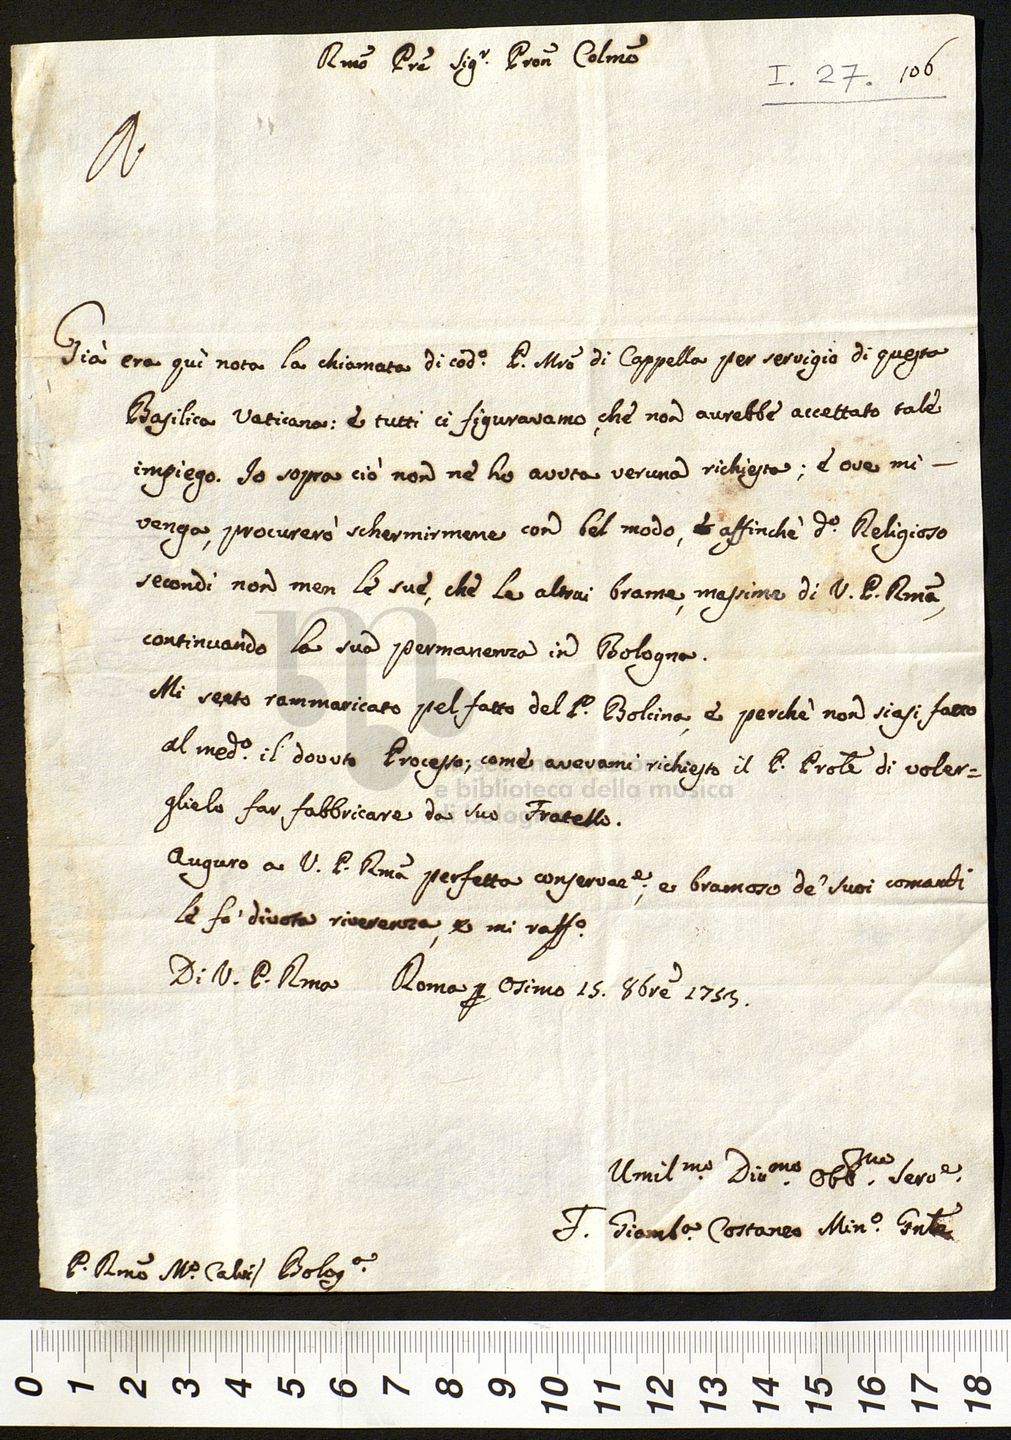 Rmo Pre Sigr. Pron Colmo
I. 27. 106
Già era quì nota la chiamata di cod.o P. Mro di Cappella per servigio di questa
Basilica Vaticana: e tutti ci figuravamo, che non aurebbe accettato tale
impiego. Io sopra ciò non ne ho avuta veruna richiesta; e ove mi —
venga, procurerò schermirmene con bel modo, affinchè d.o Religioso
secondi non men le sue, che le altrui brame, massime di V. P. Rma,
continuando la sua permanenza in Bologna.
Mi sento rammaricato pel fatto del P. Bolcina, e perchè non siasi fatto
al med.o il dovuto Processo; come avevami richiesto il P. Prole di voler=
glielo far fabbricare da suo Fratello.
Auguro a V. P. Rma perfetta conservae.e; e bramoso de' suoi comandi
le fò divota riverenza, e mi raff.o
Di V. P. Rma Roma p Osimo 15. 8bre 1753.
Umil.mo Div.mo Obb.mo Serv.e
F. Giamb.a Costanzo Min.o Gnle
P. Rmo M.o Calvi / Bolog.a
e biblioteca della musica
0 1 2 3 4 5 6 7 8 9 10 11 12 13 14 15 16 17 18